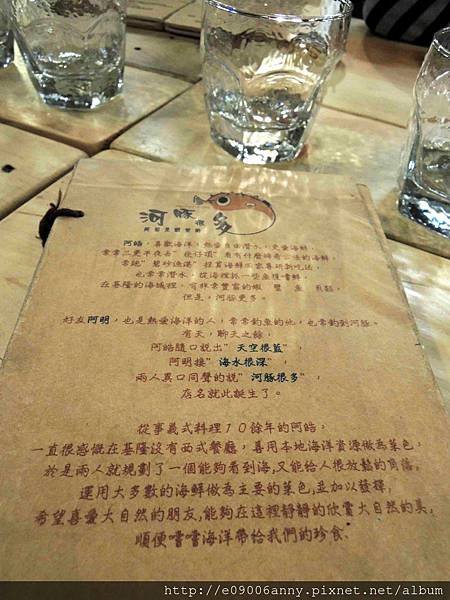 河豚很多
阿皓,喜歡海洋,熱愛自由潛水,更愛海鮮,
常常三更半夜去"崁仔頂"看有什麼
常跑"碧砂漁港"
也常常潛水,從海裡抓一些魚種嘗鮮,
在基隆的海域裡,有非常豐富的蝦 蟹 魚 貝類,
但是,河豚更多。
好友阿明,也是熱愛海洋的人,常常釣魚的他,也常釣到河豚。
有天,聊天之餘,
阿皓隨口說出"天空很藍",
阿明接"海水很深",
兩人異口同聲的說"河豚很多",
店名就此誕生了。
從事義式料理10餘年的阿皓,
一直很感慨在基隆沒有西式餐廳,善用本地海洋資源做為菜色,
於是兩人就規劃了一個能夠看到海,又能給人很放鬆的角落,
運用大多數的海鮮做為主要的菜色,並加以發揮,
希望喜愛大自然的朋友,能夠在這裡靜靜的欣嘗大自然的美,
順便嚐嚐海洋帶給我們的珍食.
http://e09006anny.pixnet.net/album